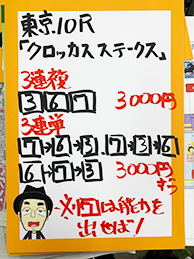 東京.10R
「クロッカスステークス」
3連複
3 6 7 3000円
3連単
7→6→3、7→3→6
6→7→3 3000円
ずつ
※7は能力を
出せば!